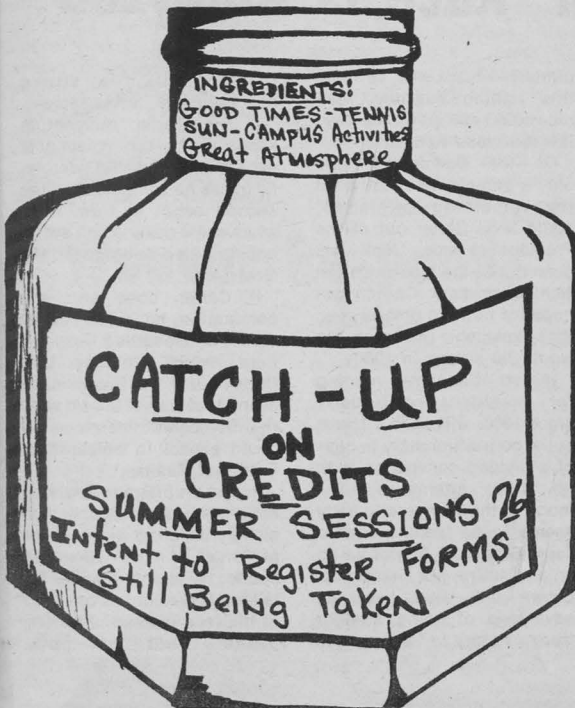 INGREDIENTS:
GOOD TIMES-TENNIS
SUN-CAMPUS Activities
Great Atmosphere
CATCH-UP
ON
CREDITS
SUMMER SESSIONS 76
Intent to Register FORMS
Still Being Taken